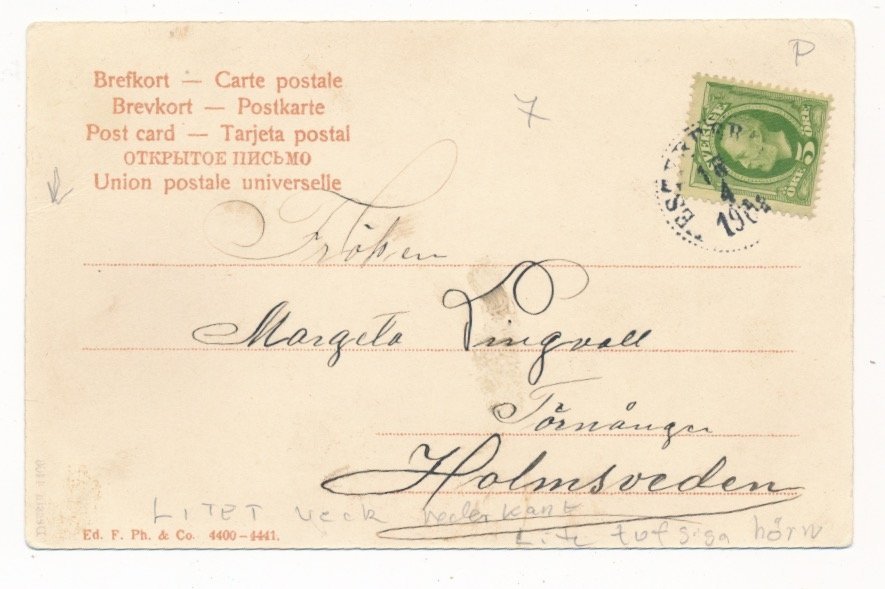 P
Brefkort — Carte postale
Brevkort — Postkarte
Post card — Tarjeta postal
ОТКРЫТОЕ ПИСЬМО
Union postale universelle
7
SVERIGE
5 ÖRE
ÖRE
18
4
Fröken
Margeta Lingvall
Törnånger
Holmsveden
LITET veck nederkant
Lite tufsiga hörn
Ed. F. Ph. & Co. 4400-4441.